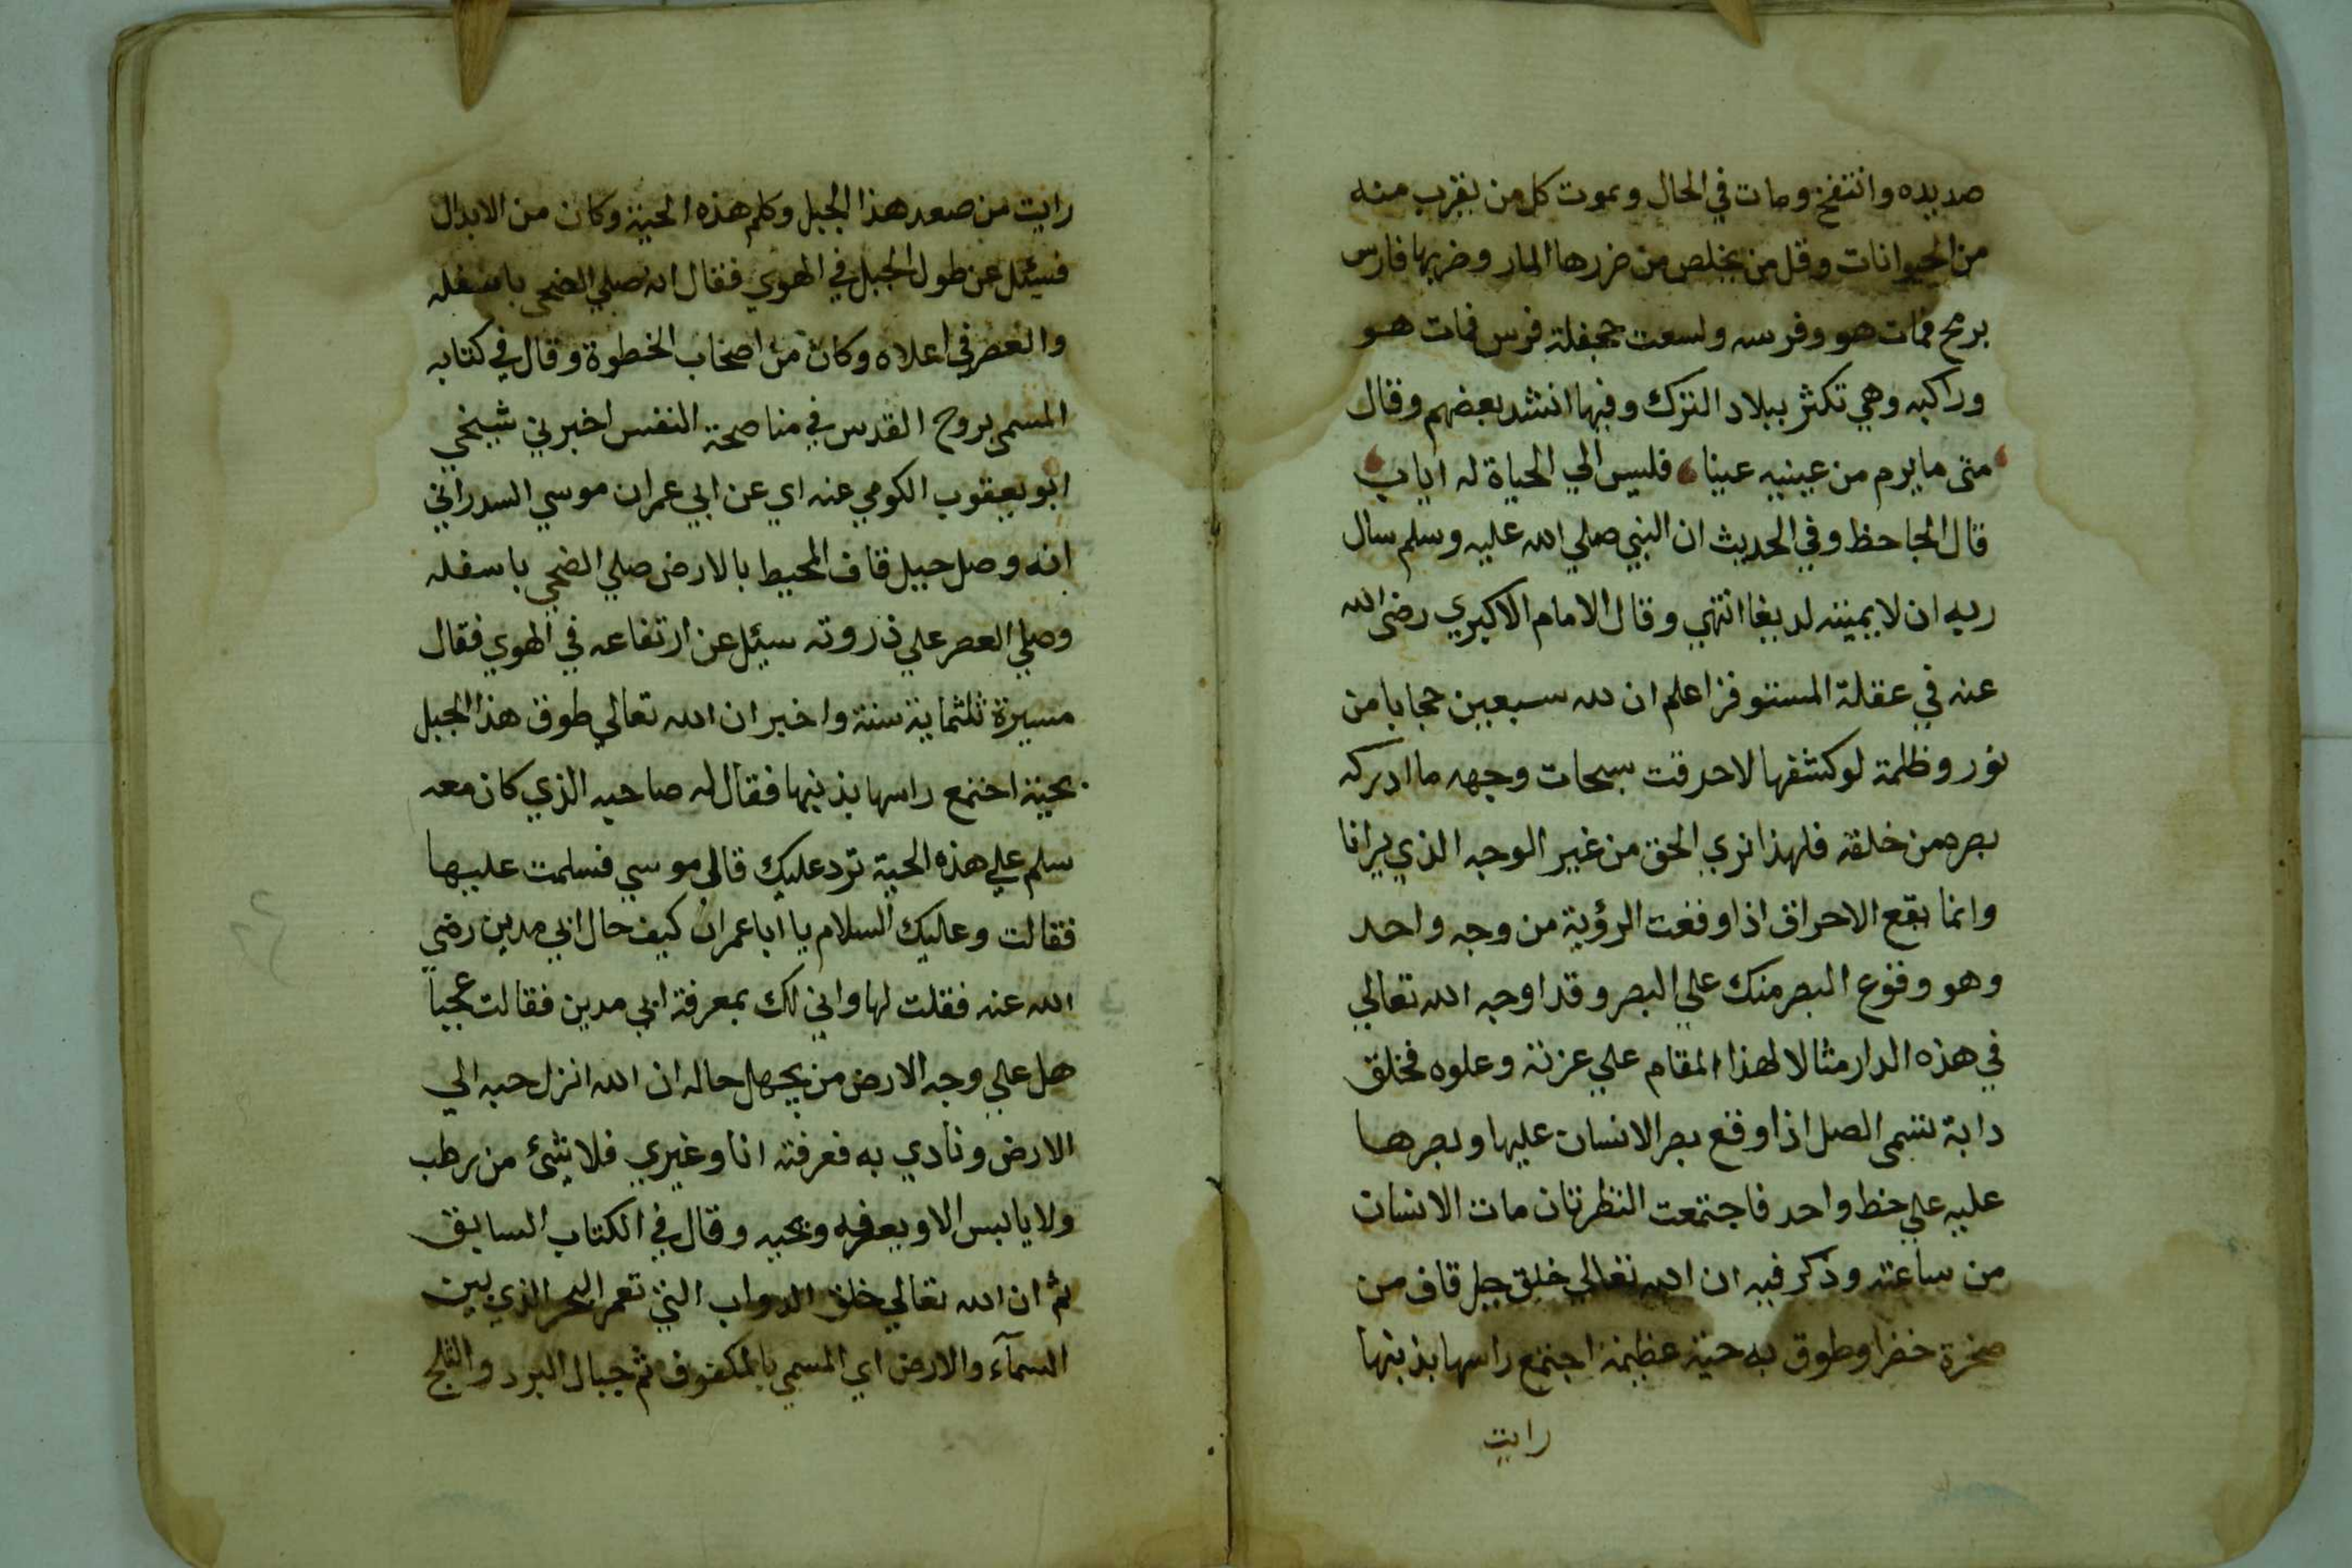 صديده وانتفخ ومات في الحال ويموت كل من يقرب منه
من الحيوانات وقل من يخلص من ضررها المار وضربها فارس
برمح فمات هو وفرسه ولسعت جحفلة فرس فمات هو
وراكبه وهي تكثر ببلاد الترك وفيها انشد بعضهم وقال
متى ما يرم من عينيه عينا فليس الي الحياة له اياب
قال الجاحظ وفي الحديث ان النبي صلي الله عليه وسلم سال
ربه ان لا يميته لديغا انتهي وقال الامام الاكبري رضى الله
عنه في عقلة المستوفز اعلم ان لله سبعين حجابا من
نور وظلمة لو كشفها لاحرقت سبحات وجهه ما ادركه
بصره من خلقه فلهذا نري الحق من غير الوجه الذي يرانا
وانما يقع الاحراق اذا وقعت الرؤية من وجه واحد
وهو وقوع البصر منك علي البصر وقد اوجه الله تعالي
في هذه الدار مثالا لهذا المقام علي عزته وعلوه فخلق
دابة تسمى الصل اذا وقع بصر الانسان عليها وبصرها
عليه علي خط واحد فاجتمعت النظرتان مات الانسان
من ساعته وذكر فيه ان الله تعالي خلق جبل قاف من
صخرة خضرا وطوق به حية عظيمة اجتمع راسها بذنبها
رايت
رايت من صعد هذا الجبل وكلم هذه الحية وكان من الابدال
فسئل عن طول الجبل في الهوي فقال انه صلي الضحى باسفله
والعصر في اعلاه وكان من اصحاب الخطوة وقال في كتابه
المسمى بروح القدس في مناصحة النفس اخبرني شيخي
ابو يعقوب الكومي عنه اي عن ابي عمران موسي السدراتي
انه وصل جبل قاف المحيط بالارض صلي الضحي باسفله
وصلي العصر علي ذروته سئل عن ارتفاعه في الهوي فقال
مسيرة ثلثماية سنة واخبر ان الله تعالي طوق هذا الجبل
بحية اختمع راسها بذنبها فقال له صاحبه الذي كان معه
سلم علي هذه الحية ترد عليك قال موسي فسلمت عليها
فقالت وعليك السلام يا ابا عمران كيف حال ابي مدين رضي
الله عنه فقلت لها واني لك بمعرفة ابي مدين فقالت عجباً
هل علي وجه الارض من يجهل حاله ان الله انزل حبه الي
الارض ونادي به فعرفته انا وغيري فلا شئ من رطب
ولا يابس الا ويعرفه ويحبه وقال في الكتاب السابق
ثم ان الله تعالي خلق الدواب التي تعمر البحر الذي بين
السمآء والارض اي المسمي بالمكفوف ثم جبال البرد والثلج